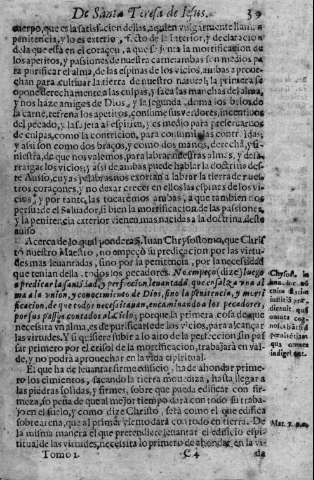 De Santa Teresa de Iesus. 39
cuerpo, que es la satisfacion dellas, a quien vulgarmente llaman
penitencia, y lo es exterior, fruto de la interior, y declaracion
de la que està en el coraçon, a que se junta la mortificacion de
los apetitos, y passiones de nuestra carne: ambas son medios para
para purificar el alma, de las espinas de los vicios, ambas aprouechan
chan para cultiuar la tierra de nuestro natural; la primera se
opone derechamente a las culpas, y saca las manchas del alma,
y nos haze amigos de Dios, y la segunda, doma los
carne, refrena los apetitos, consume sus verdores, incentiuos
del pecado, y la sugeta al espiritu, y es medio para preseruarnos
de culpas, como la contricion, para consumir las contraidas;
y assi son como dos braços, y como dos manos, derecha, y siniestra,
de que nos valemos, para labrar nuestras almas, y desarraigar
los vicios; y assi de ambas puede hablar la doctrina deste
Auiso, cuyas palabras nos exortan a labrar la tierra de nuestros
coraçones, y no dexar crecer en ellos las espinas de los vicios;
y por tanto, las tocarèmos ambas, a que tambien nos
persuade el Salvador, si bien la mortificacion de las passiones,
y la penitencia exterior vienen mas nacidas a la doctrina deste
auiso
Acerca de lo qual pondera S. Iuan Chrysostomo, que Christo
nuestro Maestro, no empeçò su predicacion por las virtudes
mas leuantadas, sino por la penitencia, por la necessidad
que tenian della todos los pecadores. No empeçò (dize) luego
a predicar la santidad, y perfeccion leuantada, que ensalça una alma
a la vnion, y conocimiento de Dios, sino la penitencia, y mortificacion,
de que todos necessitauan, encaminando a los pecadores,
por sus passos contados al Cielo; porque la primera cosa de que
necessita vn alma, es de purificarse de los vicios, para alcançar
las virtudes. Y si quisiere subir a lo alto de la perfeccion sin passar
primero por el crisol de la mortificacion, trabajarà en valde,
y no podrà aprouechar en la vida espiritual.
El que ha de leuantar firme edificio, ha de ahondar primero
los cimientos, sacando la tierra mouediza, hasta llegar a
las piedras solidas, y firmes, sobre que pueda edificar con firmeza,
so pena de que al mejor tiempo darà con todo su trabajo
en el suelo, y como dize Christo, serà como el que edifica
sobre arena, que al primer viento darà con todo en tierra. De
la misma manera el que pretendiere leuantar el edificio espiritual
de las virtudes, necessita lo primero de ahondar en la vi-
Tomo I. C 4 da
Chrysost.
Mat. 7.